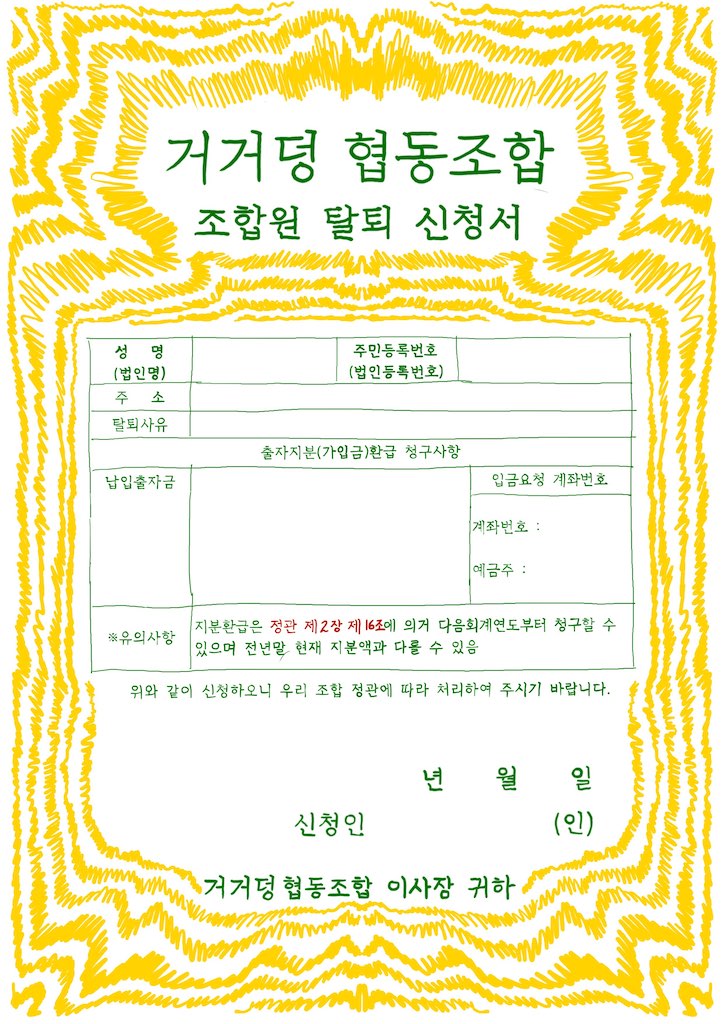 거거덩 협동조합
조합원 탈퇴 신청서
성 명 주민등록번호
(법인명) (법인등록번호)
주 소
탈퇴사유
출자지분(가입금)환급 청구사항
납입출자금 입금요청 계좌번호
계좌번호 :
예금주 :
※유의사항
지분환급은 정관 제2장 제16조에 의거 다음회계연도부터 청구할 수
있으며 전년말 현재 지분액과 다를 수 있음
위와 같이 신청하오니 우리 조합 정관에 따라 처리하여 주시기 바랍니다.
년 월 일
신청인 (인)
거거덩협동조합 이사장 귀하